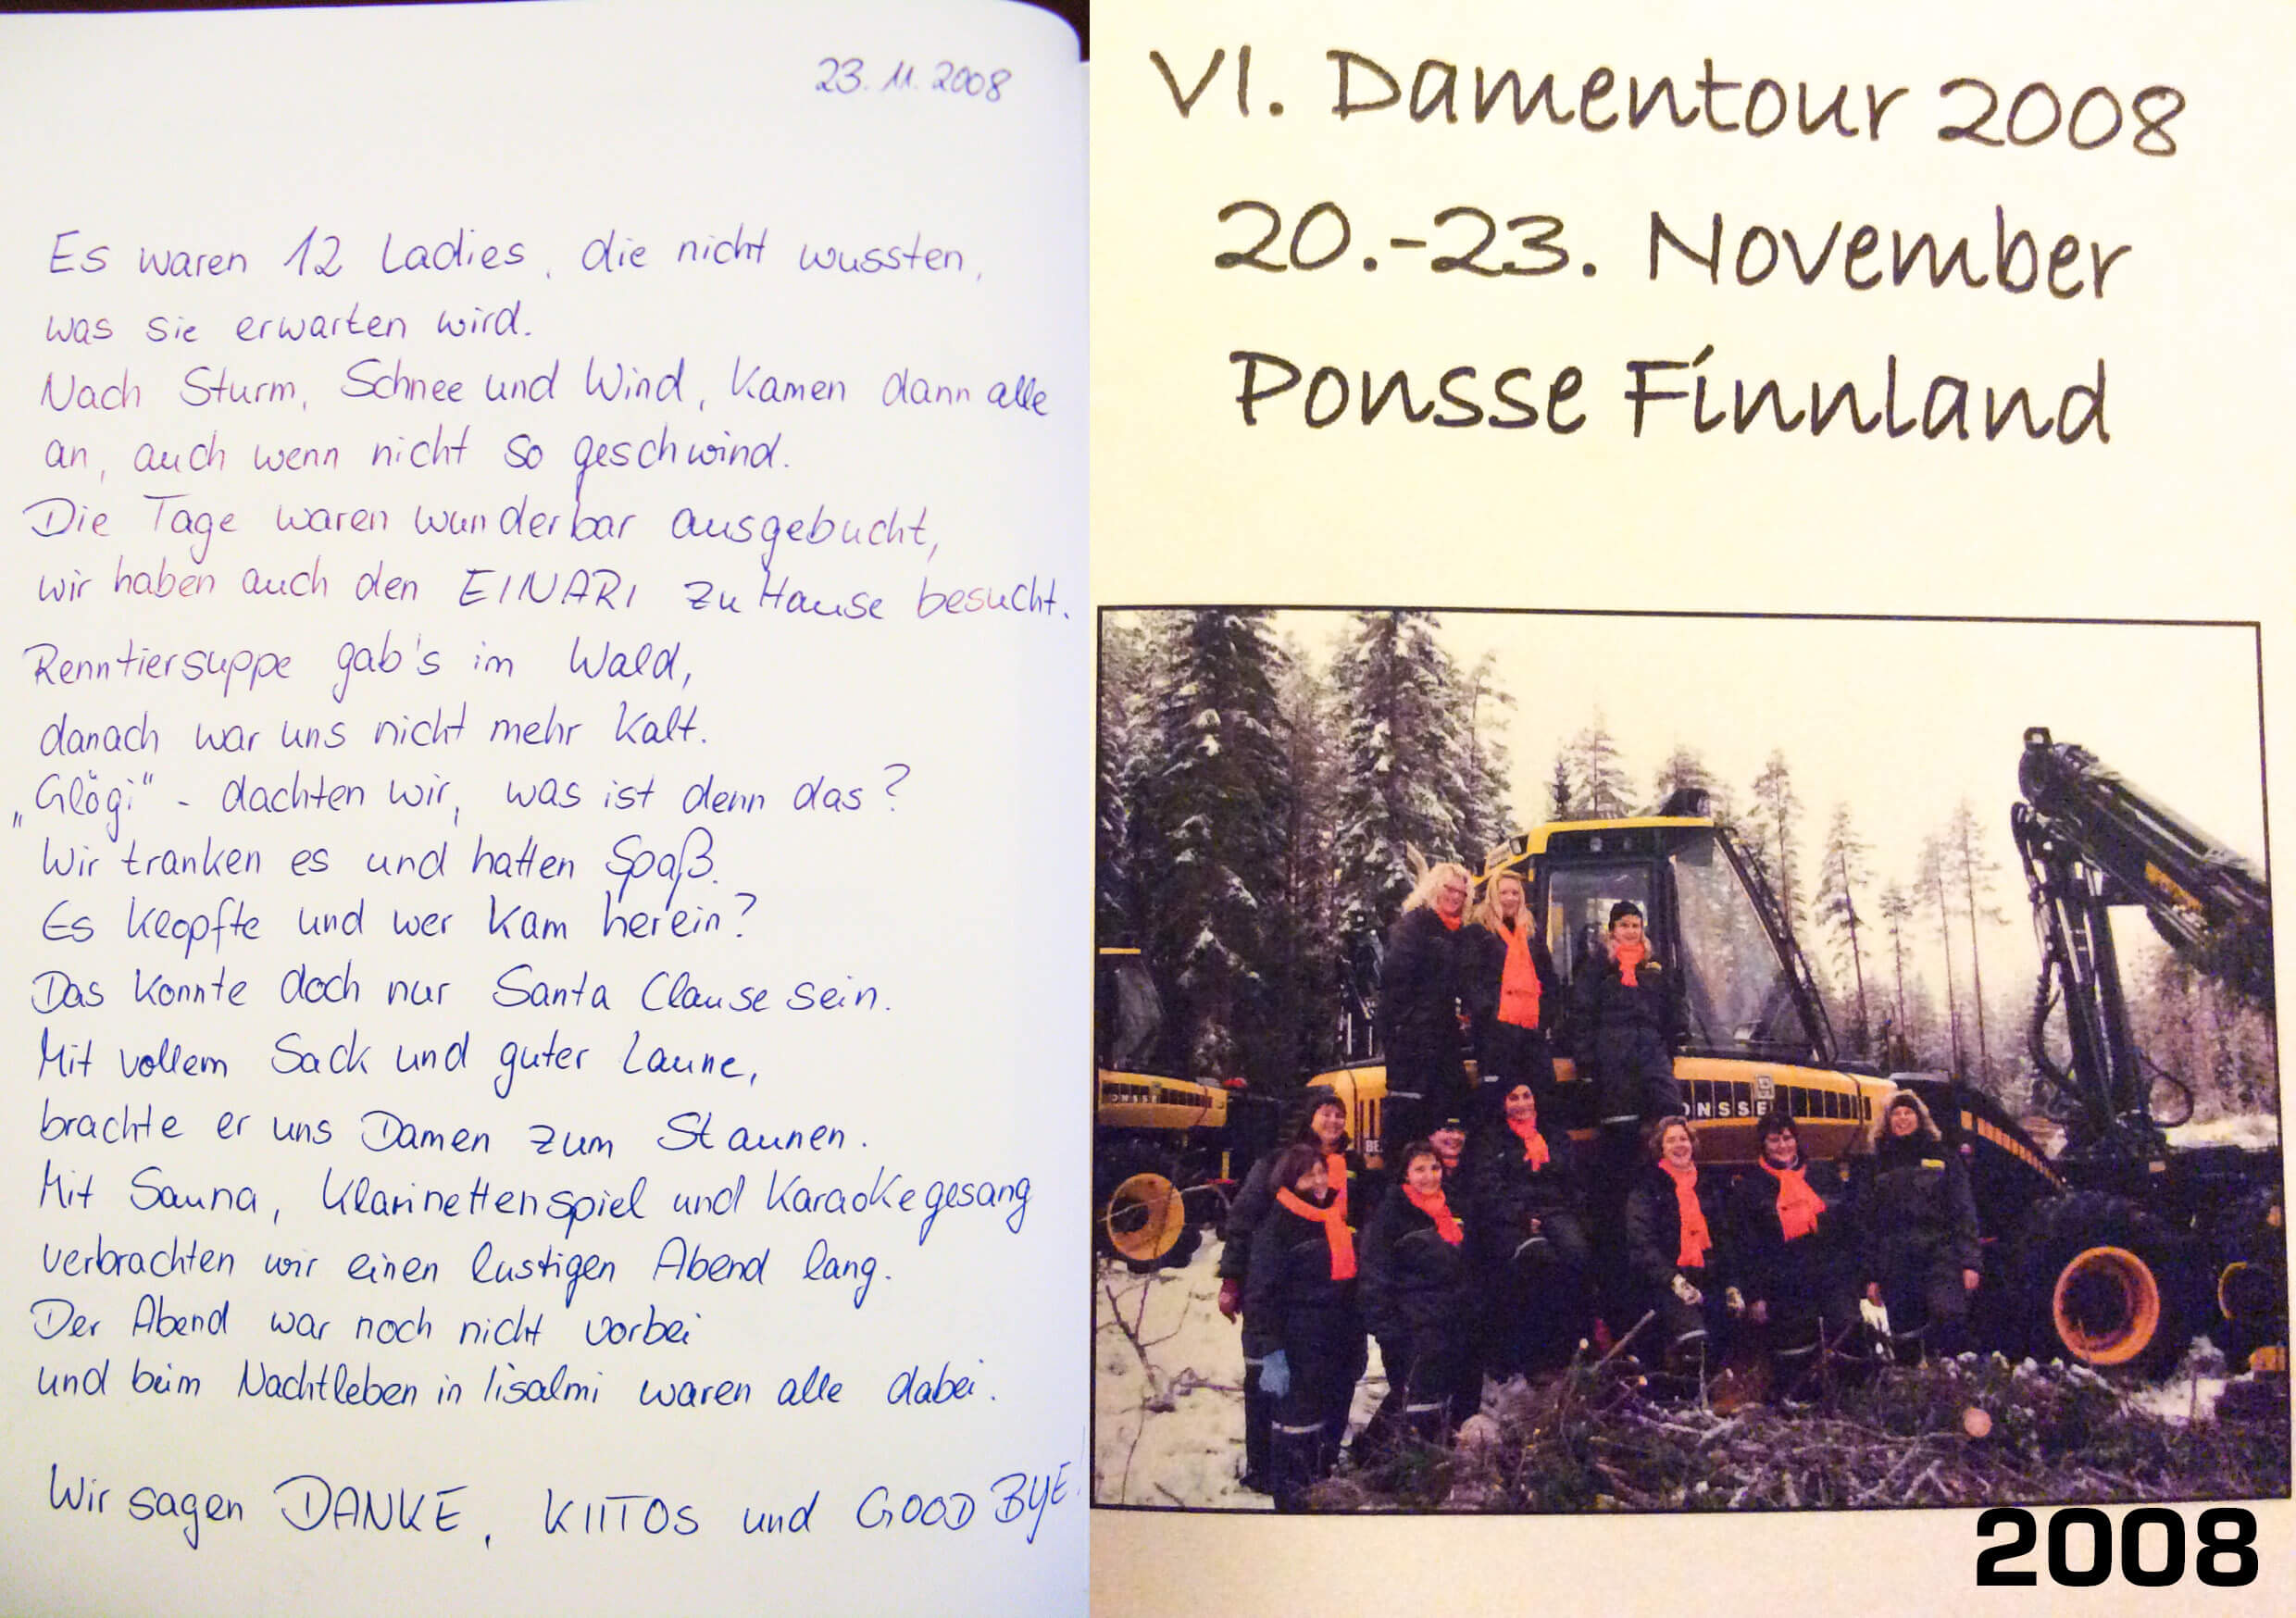 23. 11. 2008
Es waren 12 Ladies, die nicht wussten,
was sie erwarten wird.
Nach Sturm, Schnee und Wind, kamen dann alle
an, auch wenn nicht so geschwind.
Die Tage waren wunderbar ausgebucht,
wir haben auch den EINARI zu Hause besucht.
Renntiersuppe gab's im Wald,
danach war uns nicht mehr kalt.
„Glögi" - dachten wir, was ist denn das?
Wir tranken es und hatten Spaß.
Es klopfte und wer kam herein?
Das konnte doch nur Santa Clause sein.
Mit vollem Sack und guter Laune,
brachte er uns Damen zum Staunen.
Mit Sauna, Klarinettenspiel und Karaokegesang
verbrachten wir einen lustigen Abend lang.
Der Abend war noch nicht vorbei
und beim Nachtleben in Iisalmi waren alle dabei.
Wir sagen DANKE, KIITOS und GOOD BYE!
VI. Damentour 2008
20.-23. November
Ponsse Finnland
ONSSE
ONSSE
BE
2008